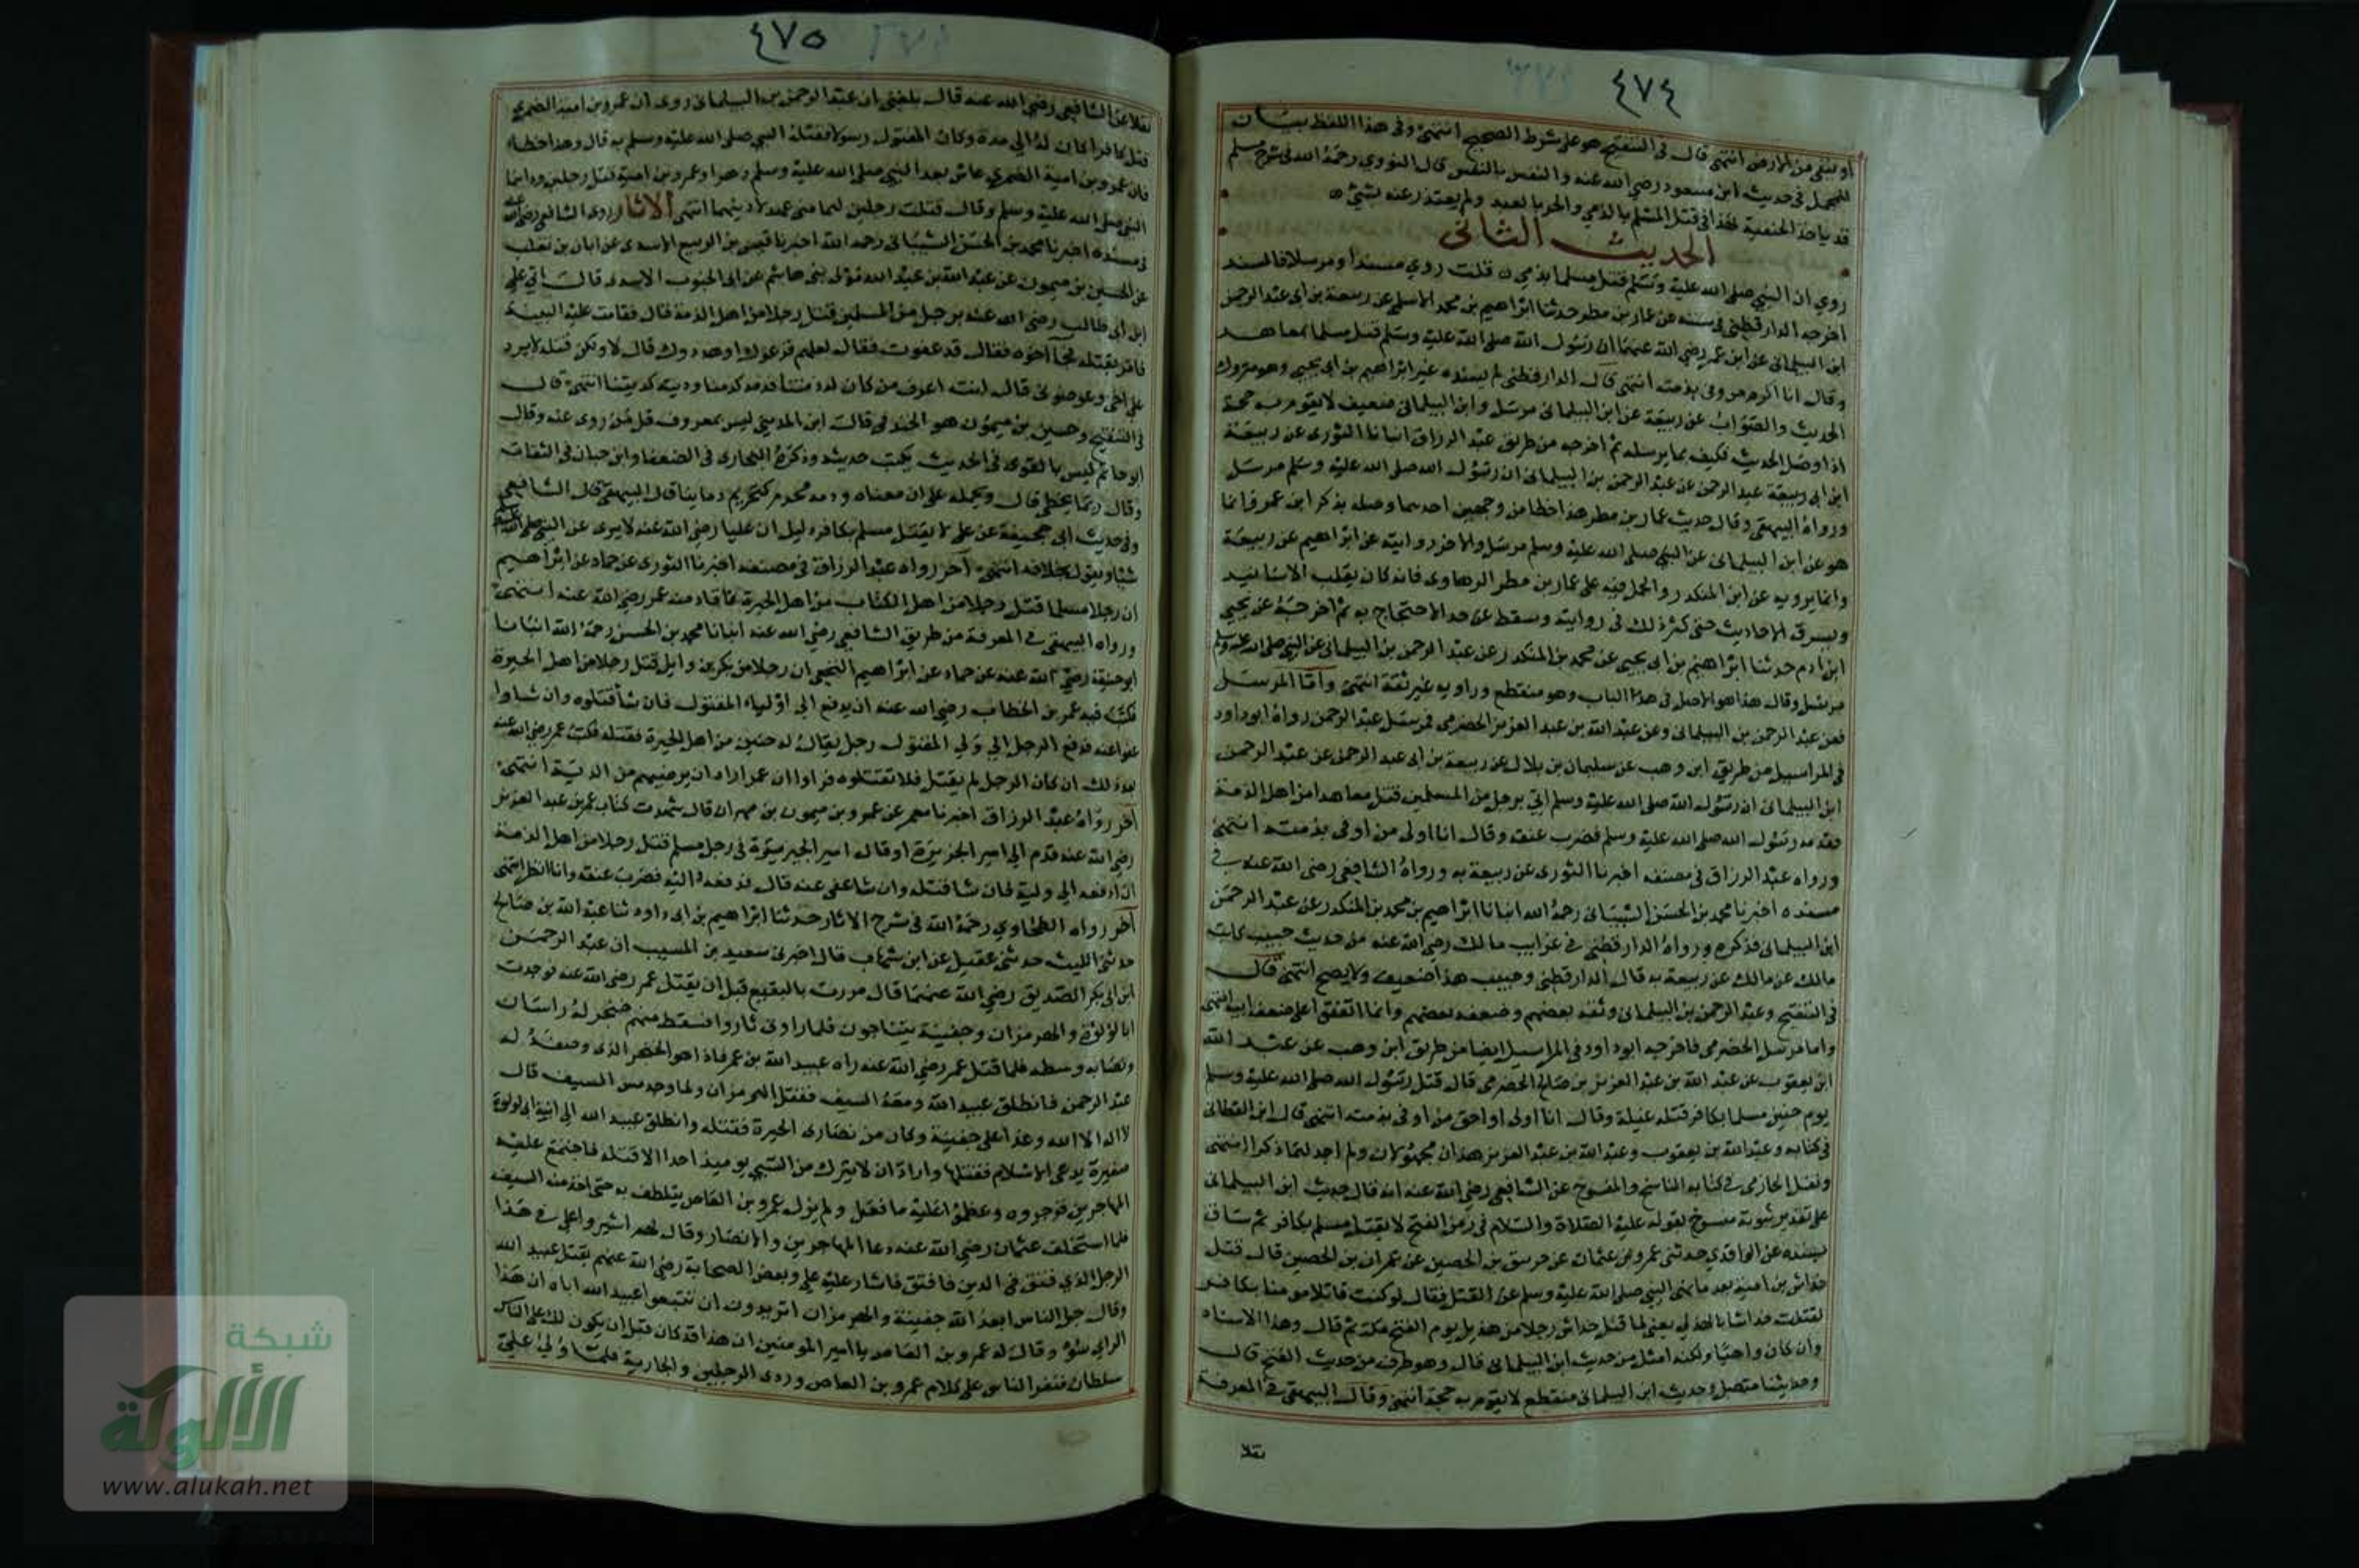 ٤٧٤
أو ينفى من الارض انتهى قال في التنقيح هو على شرط الصحيح انتهى وفي هذا اللفظ بيان
للمجمل في حديث ابن مسعود رضي الله عنه والنفس بالنفس قال النووي رحمه الله في شرح مسلم
قد ياخذ الحنفية بهذا في قتل المسلم بالذمي والحر بالعبد ولم يعتذر عنه بشيء
الحديث الثاني
روي ان النبي صلى الله عليه وسلم قتل مسلما بذمي قلت روي مسندا ومرسلا فالمسند
اخرجه الدارقطني في سننه عن عمار بن مطر حدثنا ابراهيم بن محمد الاسلمي عن ربيعة بن ابي عبد الرحمن
ابن البيلماني عن ابن عمر رضي الله عنهما ان رسول الله صلى الله عليه وسلم قتل مسلما بمعاهد
وقال انا اكرم من وفى بذمته انتهى قال الدارقطني لم يسنده غير ابراهيم بن ابي يحيى وهو متروك
الحديث والصواب عن ربيعة عن ابن البيلماني مرسل وابن البيلماني ضعيف لا يقوم به حجة
اذا وصل الحديث فكيف بما يرسله ثم اخرجه من طريق عبد الرزاق انبانا الثوري عن ربيعة
ابن ابي ربيعة عبد الرحمن عن عبد الرحمن بن البيلماني ان رسول الله صلى الله عليه وسلم مرسل
ورواه البيهقي وقال حديث عمار بن مطر هذا خطا من وجهين احدهما وصله بذكر ابن عمر وانما
هو عن ابن البيلماني عن النبي صلى الله عليه وسلم مرسل والاخر روايته عن ابراهيم عن ربيعة
وانما يرويه عن ابن المنكدر والحمل فيه على عمار بن مطر الرهاوي فانه كان يقلب الاسانيد
ويسرق الاحاديث حتى كثر ذلك في روايته وسقط عن حد الاحتجاج به ثم اخرجه عن يحيى
ابن ادم حدثنا ابراهيم بن ابي يحيى عن محمد بن المنكدر عن عبد الرحمن بن البيلماني عن النبي صلى الله عليه وسلم
مرسل وقال هذا هو الاصل في هذا الباب وهو منقطع وراويه غير ثقة انتهى واما المرسل
فعن عبد الرحمن بن البيلماني وعن عبد الله بن عبد العزيز الحضرمي فمرسل عبد الرحمن رواه ابوداود
في المراسيل من طريق ابن وهب عن سليمان بن بلال عن ربيعة بن ابي عبد الرحمن عن عبد الرحمن
ابن البيلماني ان رسول الله صلى الله عليه وسلم اتي برجل من المسلمين قتل معاهدا من اهل الذمة
فقدمه رسول الله صلى الله عليه وسلم فضرب عنقه وقال انا اولى من اوفى بذمته انتهى
ورواه عبد الرزاق في مصنفه اخبرنا الثوري عن ربيعة به ورواه الشافعي رضي الله عنه في
مسنده اخبرنا محمد بن الحسن الشيباني رحمه الله انبانا ابراهيم بن محمد بن المنكدر عن عبد الرحمن
ابن البيلماني فذكره ورواه الدارقطني في غرايب مالك رضي الله عنه من حديث حبيب كاتب
مالك عن مالك عن ربيعة به قال الدارقطني وحبيب هذا ضعيف ولا يصح انتهى قال
في التنقيح وعبد الرحمن بن البيلماني وثقه بعضهم وضعفه بعضهم وانما اتفقوا على ضعف ابيه انتهى
واما مرسل الحضرمي فاخرجه ابوداود في المراسيل ايضا من طريق ابن وهب عن عبد الله
ابن يعقوب عن عبد الله بن عبد العزيز بن صالح الحضرمي قال قتل رسول الله صلى الله عليه وسلم
يوم حنين مسلما بكافر قتله غيلة وقال انا اولى او احق من اوفى بذمته انتهى قال ابن القطان
في كتابه وعبد الله بن يعقوب وعبد الله بن عبد العزيز هذان مجهولان ولم اجد لهما ذكرا انتهى
ونقل الحازمي في كتابه الناسخ والمنسوخ عن الشافعي رضي الله عنه انه قال حديث ابن البيلماني
على تقدير ثبوته منسوخ لقوله عليه الصلاة والسلام في زمن الفتح لا يقتل مسلم بكافر ثم ساق
بسنده عن الواقدي حدثني عمرو بن عثمان عن خرينق بن الحصين عن عمران بن الحصين قال قتل
خداش بن امية بعد ما نهى النبي صلى الله عليه وسلم عن القتل فقال لو كنت قاتلا مومنا بكافر
لقتلت خداشا بالهذلي يعني لما قتل خداش رجلا من هذيل يوم الفتح مكة ثم قال وهذا الاسناد
وان كان واهيا ولكنه امثل من حديث ابن البيلماني قال وهو طرف من حديث الفتح قال
وحديثنا متصل وحديث ابن البيلماني منقطع لا يقوم به حجة انتهى وقال البيهقي في المعرفة
نقلا
٤٧٥
نقلا عن الشافعي رضي الله عنه قال بلغني ان عبد الرحمن بن البيلماني روى ان عمرو بن امية الضمري
قتل كافرا كان له الى مدة وكان المقتول رسولا فقتله النبي صلى الله عليه وسلم به قال وهذا خطا
فان عمرو بن امية الضمري عاش بعد النبي صلى الله عليه وسلم دهرا وعمرو بن امية قتل رجلين وداهما
النبي صلى الله عليه وسلم وقال قتلت رجلين لهما مني عهد لادينهما انتهى الاثار روى الشافعي رضي الله عنه
في مسنده اخبرنا محمد بن الحسن الشيباني رحمه الله اخبرنا قيس بن الربيع الاسدي عن ابان بن تغلب
عن الحسين بن ميمون عن عبد الله بن عبد الله مولى بني هاشم عن ابي الجنوب الاسدي قال اتي علي
ابن ابي طالب رضي الله عنه برجل من المسلمين قتل رجلا من اهل الذمة قال فقامت عليه البينة
فامر بقتله فجا اخوه فقال قد عفوت فقال لعلهم فزعوك او هددوك قال لا ولكن قتله لا يرد
علي اخي وعوضوني قال انت اعرف من كان له ذمتنا فدمه كدمنا وديته كديتنا انتهى قال
في التنقيح وحسين بن ميمون هو الخندفي قال ابن المديني ليس بمعروف قل من روى عنه وقال
ابو حاتم ليس بالقوي في الحديث يكتب حديثه وذكره البخاري في الضعفا وابن حبان في الثقات
وقال ربما يخطي قال ويحمله على ان معناه ودمه محرم كتحريم دماينا قال البيهقي قال الشافعي
وفي حديث ابي جحيفة عن علي لا يقتل مسلم بكافر دليل ان عليا رضي الله عنه لا يروي عن النبي صلى الله عليه وسلم
شيا ويقول بخلافه انتهى آخر رواه عبد الرزاق في مصنفه اخبرنا الثوري عن حماد عن ابراهيم
ان رجلا مسلما قتل رجلا من اهل الكتاب من اهل الحيرة فاقاد منه عمر رضي الله عنه انتهى
ورواه البيهقي في المعرفة من طريق الشافعي رضي الله عنه انبانا محمد بن الحسن رحمه الله انبانا
ابو حنيفة رضي الله عنه عن حماد عن ابراهيم النخعي ان رجلا من بكر بن وايل قتل رجلا من اهل الحيرة
فكتب فيه عمر بن الخطاب رضي الله عنه ان يدفع الى اولياء المقتول فان شا قتلوه وان شاوا
عفوا عنه فدفع الرجل الى ولي المقتول رجل يقال له حنين من اهل الحيرة فقتله فكتب عمر رضي الله عنه
بعد ذلك ان كان الرجل لم يقتل فلا تقتلوه فراوا ان عمر اراد ان يرضيهم من الدية انتهى
آخر رواه عبد الرزاق اخبرنا معمر عن عمرو بن ميمون بن مهران قال شهدت كتاب عمر بن عبد العزيز
رضي الله عنه قدم الى امير الجزيرة او قال امير الحيرة في رجل مسلم قتل رجلا من اهل الذمة
ان ادفعه الى وليه فان شا قتله وان شا عفى عنه قال فدفعه اليه فضرب عنقه وانا انظر انتهى
آخر رواه الطحاوي رحمه الله في شرح الاثار حدثنا ابراهيم بن ابي داود ثنا عبد الله بن صالح
حدثني الليث حدثني عقيل عن ابن شهاب قال اخبرني سعيد بن المسيب ان عبد الرحمن
ابن ابي بكر الصديق رضي الله عنهما قال مررت بالبقيع قبل ان يقتل عمر رضي الله عنه فوجدت
ابا لولوة والهرمزان وجفينة يتناجون فلما راوني ثاروا فسقط منهم خنجر له راسان
ونصابه وسطه فلما قتل عمر رضي الله عنه راه عبيد الله بن عمر فاذا هو الخنجر الذي وصفه له
عبد الرحمن فانطلق عبيد الله ومعه السيف فقتل الهرمزان ولما وجد مس السيف قال
لا اله الا الله وعدا على جفينة وكان من نصارى الحيرة فقتله وانطلق عبيد الله الى ابنة ابي لولوة
صغيرة يدعى الاسلام فقتلها واراد ان لا يترك من السبي يوميذ احدا الا قتله فاجتمع عليه
المهاجرين فزجروه وعظموا عليه ما فعل ولم يزل عمرو بن العاص يتلطف به حتى اخذ منه السيف
فلما استخلف عثمان رضي الله عنه دعا المهاجرين والانصار وقال لهم اشيروا علي في هذا
الرجل الذي فتق في الدين ما فتق فاشار عليه علي وبعض الصحابة رضي الله عنهم بقتل عبيد الله
وقال جل الناس ابعد الله جفينة والهرمزان اتريدون ان تتبعوا عبيد الله اباه ان هذا
الراي سوء وقال له عمرو بن العاص يا امير المومنين ان هذا قد كان قبل ان يكون لك على الناس
سلطان فتفرق الناس على كلام عمرو بن العاص وودى الرجلين والجارية فلما ولي علي
شبكة
الألوكة
www.alukah.net